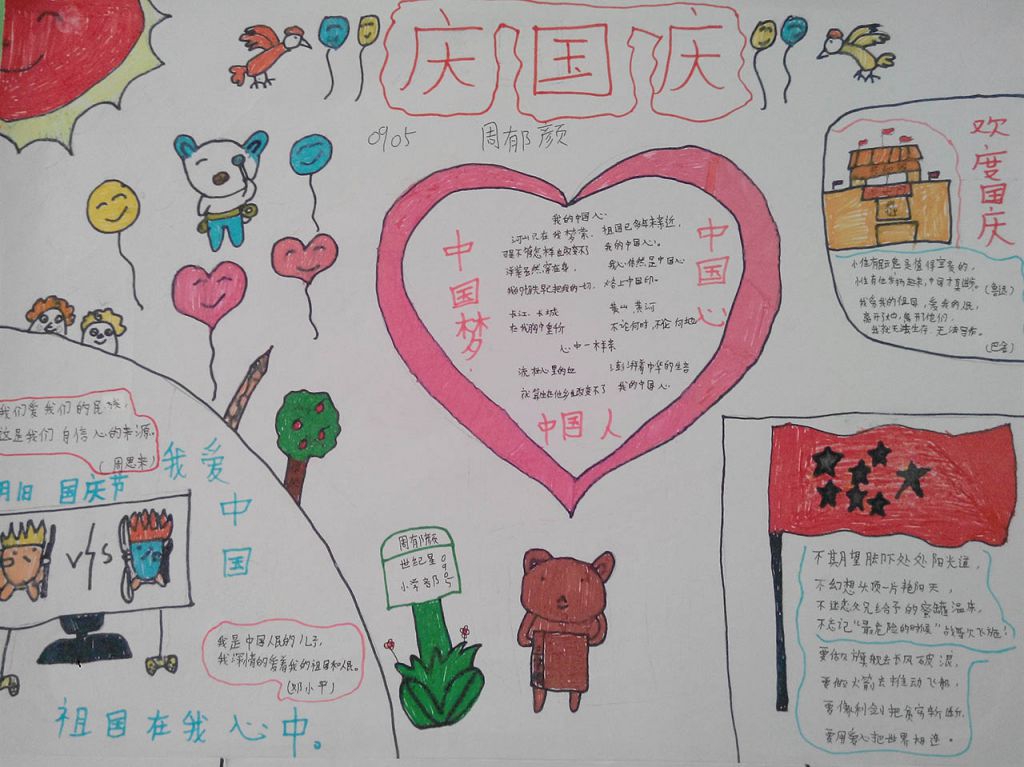 庆国庆
0905 周郁颜
中国梦
中国心
中国人
我的中国心
河山只在我梦萦, 祖国已多年未亲近,
可是不管怎样也改变不了 我的中国心。
洋装虽然穿在身, 我心依然是中国心
我的祖先早已把我的一切, 烙上中国印。
长江、长城 黄山、黄河
在我胸中重千斤 不论何时,不论何地
心中一样亲
流在心里的血 澎湃着中华的生音
就算生在他乡也改变不了 我的中国心
欢度国庆
(鲁迅)
我爱我的祖国,爱我的人民,
离开了她,离开他们,
我就无法生存,无法写作。
(巴金)
我们爱我们的民族,
这是我们自信心的来源。
(周恩来)
我爱中国
国庆节
V/S
我是中国人民的儿子,
我深情的爱着我的祖国和人民。
(邓小平)
祖国在我心中。
周郁颜
世纪星
小学部
0905
不期望脚下处处阳光道,
不幻想头顶一片艳阳天,
不迷恋父兄给予的蜜罐温床,
不忘记“最危险的时候”
要做旗舰去长风破浪,
要做火箭去推动飞船,
要像利剑把贫穷斩断,
要用爱心把世界相连。